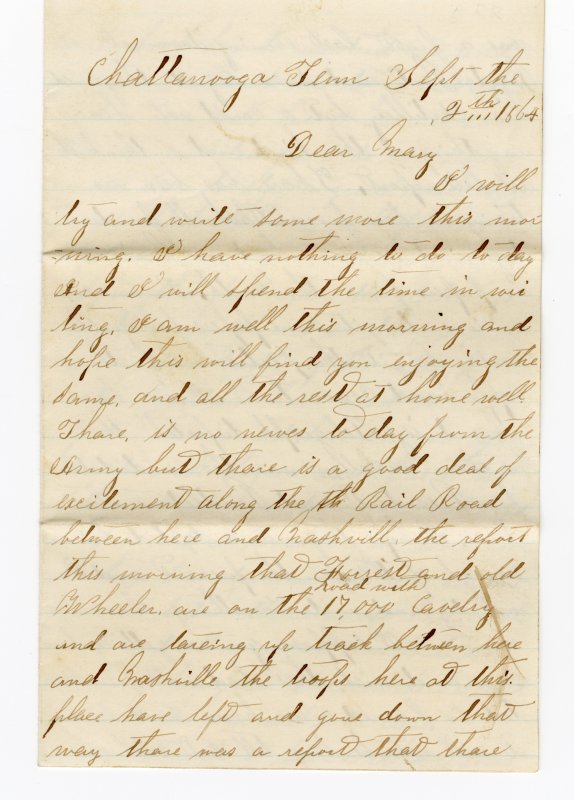 Chattanooga Tenn Sept the
2th 1864
Dear Mary
I will
try and write some more this mor
-ning. I have nothing to do to day
and I will spend the time in wri
ting, I am well this morning and
hope this will find you enjoying the
same, and all the rest at home well
Thare, is no newes to day from the
Army but thare is a good deal of
excitement along the th Rail Road
between here and Nashvill the report
this morning that Forrest and old
Wheeler. are on the road with 17,000 Cavelry
and are tareing up track between here
and Nashville the troops here at this
place have left and gone down that
way thare was a report that thare